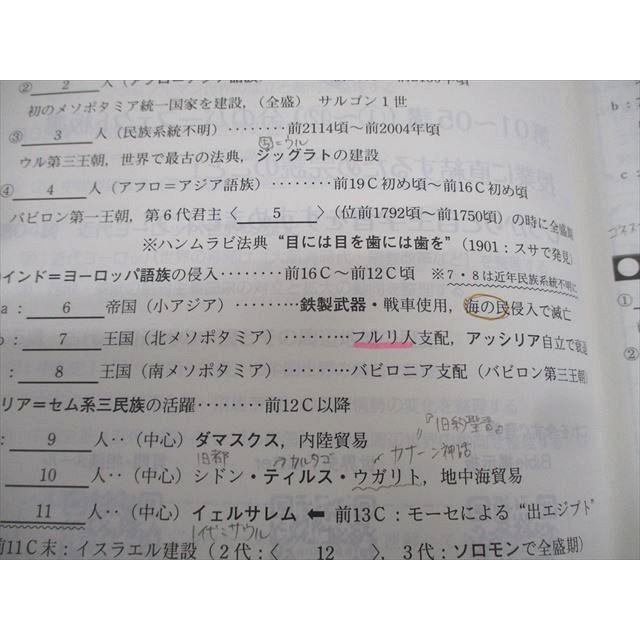 ② 2 人（アフロ＝アジア語族）
初のメソポタミア統一国家を建設，（全盛） サルゴン１世
③ 3 人（民族系統不明）‥‥‥‥前2114頃～前2004年頃
ウル第三王朝，世界で最古の法典，ジッグラトの建設
＝ウル
④ 4 人（アフロ＝アジア語族）‥‥‥‥前19Ｃ初め頃～前16Ｃ初め頃
バビロン第一王朝，第６代君主〈 5 〉（位前1792頃～前1750頃）の時に全盛期
※ハンムラビ法典“目には目を歯には歯を”（1901：スサで発見）
インド＝ヨーロッパ語族の侵入‥‥‥‥前16Ｃ～前12Ｃ頃 ※７・８は近年民族系統不明に
a： 6 帝国（小アジア）‥‥‥‥…鉄製武器・戦車使用，海の民侵入で滅亡
7 王国（北メソポタミア）‥‥‥…フルリ人支配，アッシリア自立で衰退
： 8 王国（南メソポタミア）‥‥‥…バビロニア支配（バビロン第三王朝）
リア＝セム系三民族の活躍‥‥‥‥前12Ｃ以降
： 9 人‥（中心）ダマスクス，内陸貿易
『旧約聖書』
旧都 カルタゴ カナーン神話
10 人‥（中心）シドン・ティルス・ウガリト，地中海貿易
11 人‥（中心）イェルサレム ⬅ 前13Ｃ：モーセによる“出エジプト”
1代＝サウル
前11Ｃ末：イスラエル建設（２代：〈 12 〉，３代：ソロモンで全盛期）